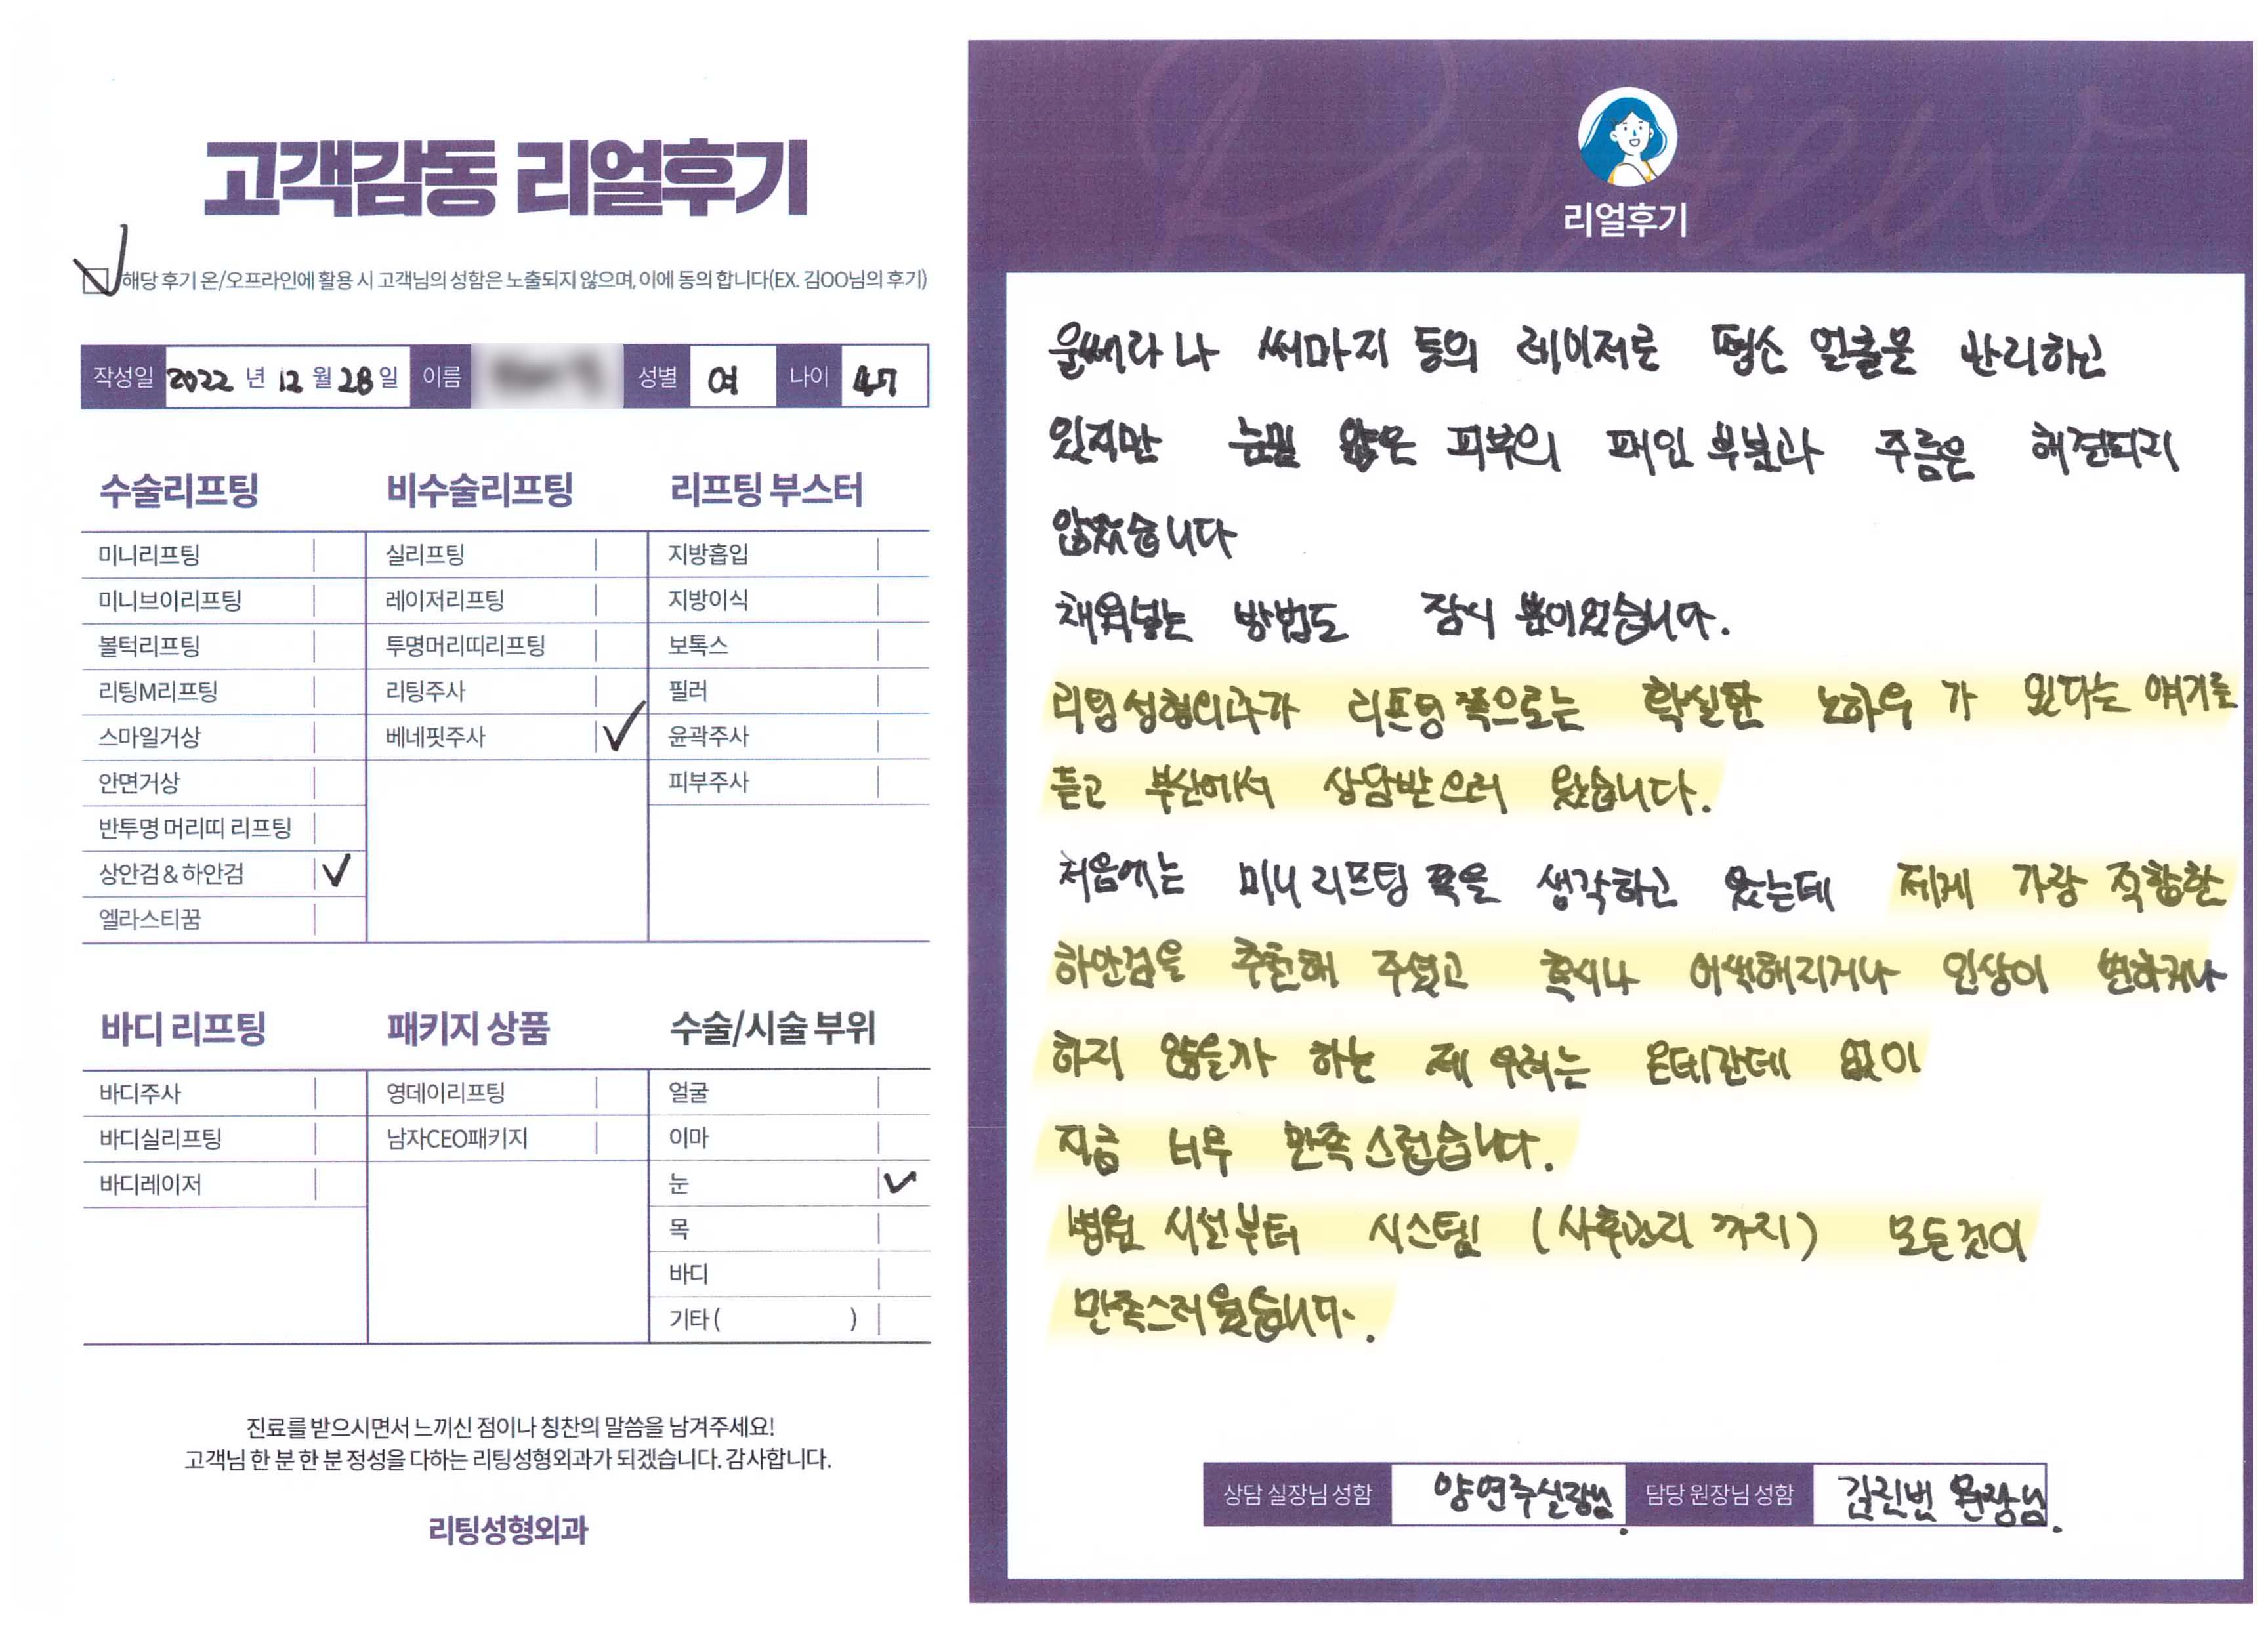 고객감동 리얼후기
해당 후기 온/오프라인에 활용 시 고객님의 성함은 노출되지 않으며, 이에 동의 합니다(EX. 김OO님의 후기)
작성일 2022 년 12 월 28 일 이름 성별 여 나이 47
수술리프팅
미니리프팅
미니브이리프팅
볼턱리프팅
리팅M리프팅
스마일거상
안면거상
반투명 머리띠 리프팅
상안검 & 하안검
엘라스티꿈
비수술리프팅
실리프팅
레이저리프팅
투명머리띠리프팅
리팅주사
베네핏주사
리프팅 부스터
지방흡입
지방이식
보톡스
필러
윤곽주사
피부주사
바디 리프팅
바디주사
바디실리프팅
바디레이저
패키지 상품
영데이리프팅
남자CEO패키지
수술/시술 부위
얼굴
이마
눈
목
바디
기타 ( )
진료를 받으시면서 느끼신 점이나 칭찬의 말씀을 남겨주세요!
고객님 한 분 한 분 정성을 다하는 리팅성형외과가 되겠습니다. 감사합니다.
리팅성형외과
Review
리얼후기
울쎄라나 써마지 등의 레이저로 평소 얼굴을 관리하고
있지만 눈밑 얇은 피부의 패인 부분과 주름은 해결되지
않았습니다
채워넣는 방법도 잠시 뿐이었습니다.
리팅성형외과가 리프팅쪽으로는 확실한 노하우 가 있다는 얘기를
듣고 부산에서 상담받으러 왔습니다.
처음에는 미니 리프팅 쪽을 생각하고 왔는데 제게 가장 적합한
하안검을 추천해 주셨고 혹시나 어색해지거나 인상이 변하거나
하지 않을까 하는 제 우려는 온데간데 없이
지금 너무 만족스럽습니다.
병원 시설부터 시스템 (사후관리 까지) 모든것이
만족스러웠습니다.
상담 실장님 성함 양연주실장님. 담당 원장님 성함 김진범 원장님.